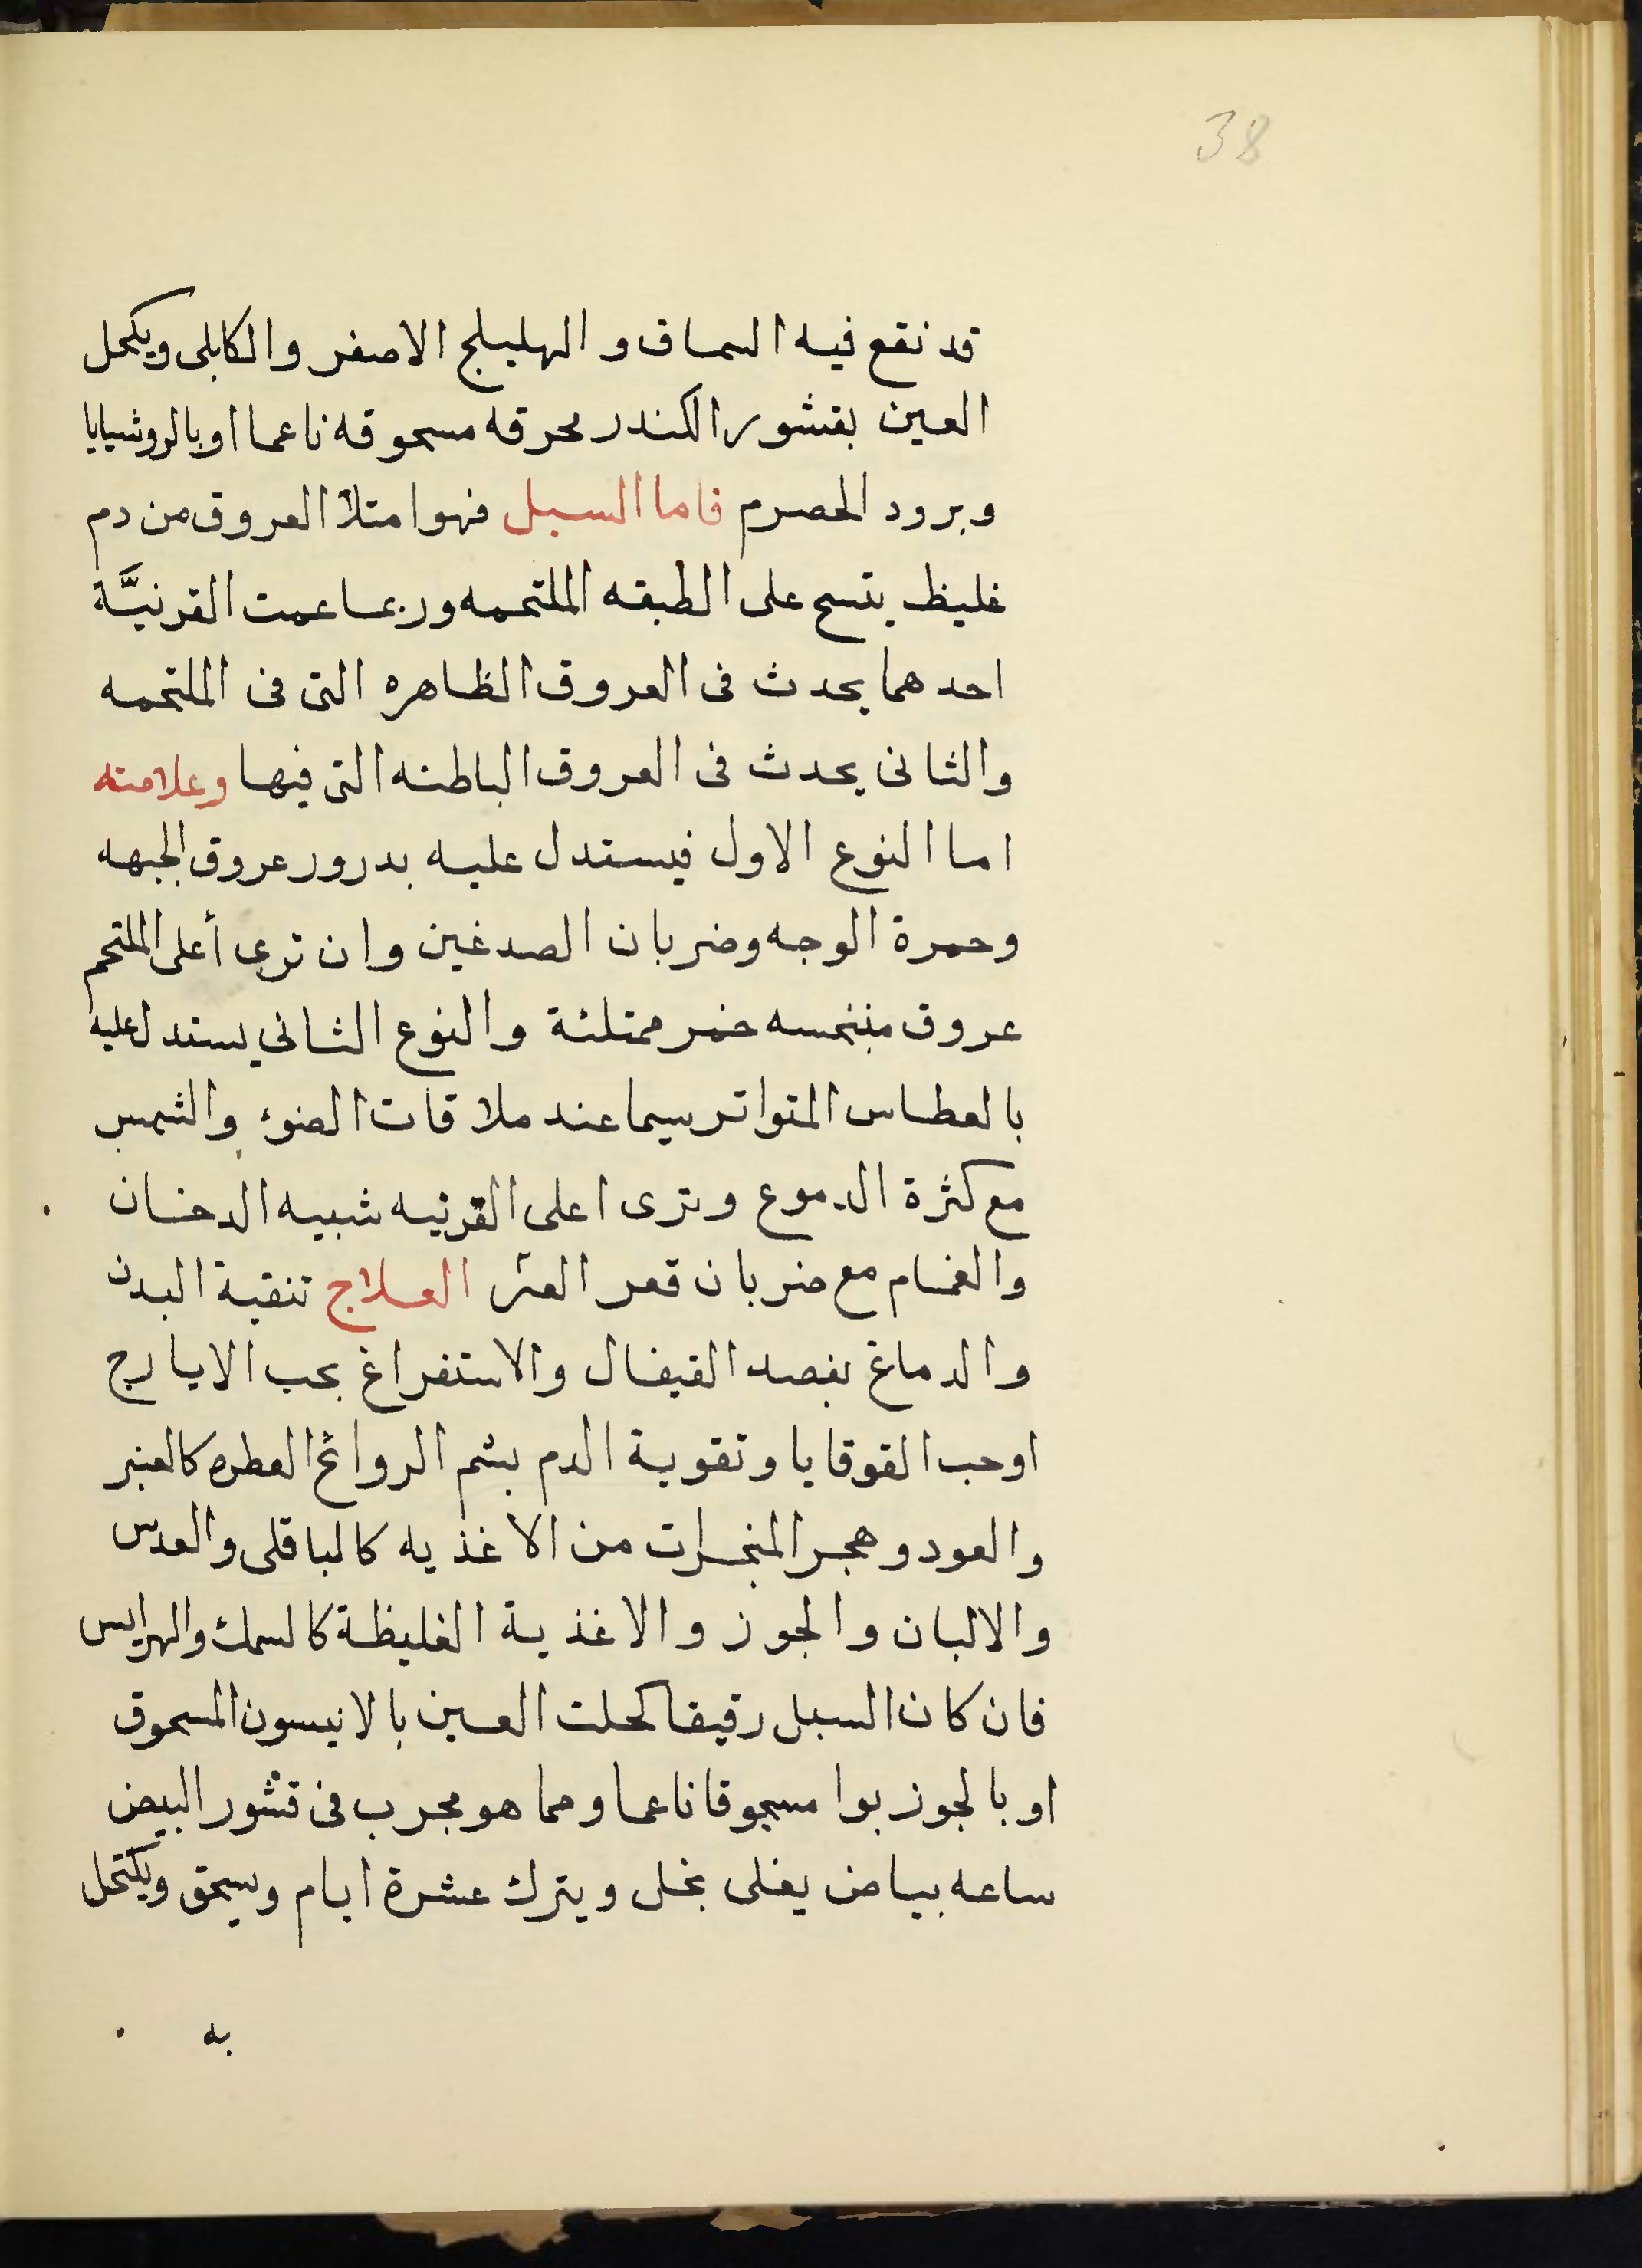 38
قد نقع فيه السماق و الهليلج الاصفر والكابلى ويكحل
العين بقشور الكندر محرقه مسحوقه ناعما اوبالروشيايا
وبرود الحصرم فاما السبل فهوا متلأ العروق من دم
غليظ يتسح على الطبقه الملتحمه وربما عمت القرنيَّة
احدهما يحدث فى العروق الظاهره التى فى الملتحمه
والثانى يحدث فى العروق الباطنه التى فيها وعلامته
اما النوع الاول فيستدل عليه بدرور عروق الجبهه
وحمرة الوجه وضربان الصدغين وان ترى أعلى الملتحم
عروق حمر ممتلئة والنوع الثانى يستدل عليه
بالعطاس المتواتر سيما عند ملاقات الضوء والشمس
مع كثرة الدموع وترى اعلى القرنيه شبيه الدخان
والغمام مع ضربان قعر العين العلاج تنقية البدن
والدماغ بفصد القيفال والاستفراغ بحب الايارج
اوحب القوقايا وتقوية الدم بشم الروائح العطره كالعنبر
والعود وهجر المبخرات من الاغذيه كالباقلى والعدس
والالبان والجوز والاغذية الغليظة كالسمك والهرايس
فان كان السبل رقيقا كحلت العين بالانيسون المسحوق
او بالجوز بوا مسحوقا ناعما ومما هو مجرب فى قشور البيض
ساعه بياض يغلى بخل ويترك عشرة ايام ويسحق ويكتحل
به